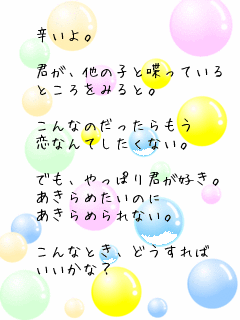 辛いよ。
君が、他の子と喋っている
ところをみると。
こんなのだったらもう
恋なんてしたくない。
でも、やっぱり君が好き。
あきらめたいのに
あきらめられない。
こんなとき、どうすれば
いいかな？